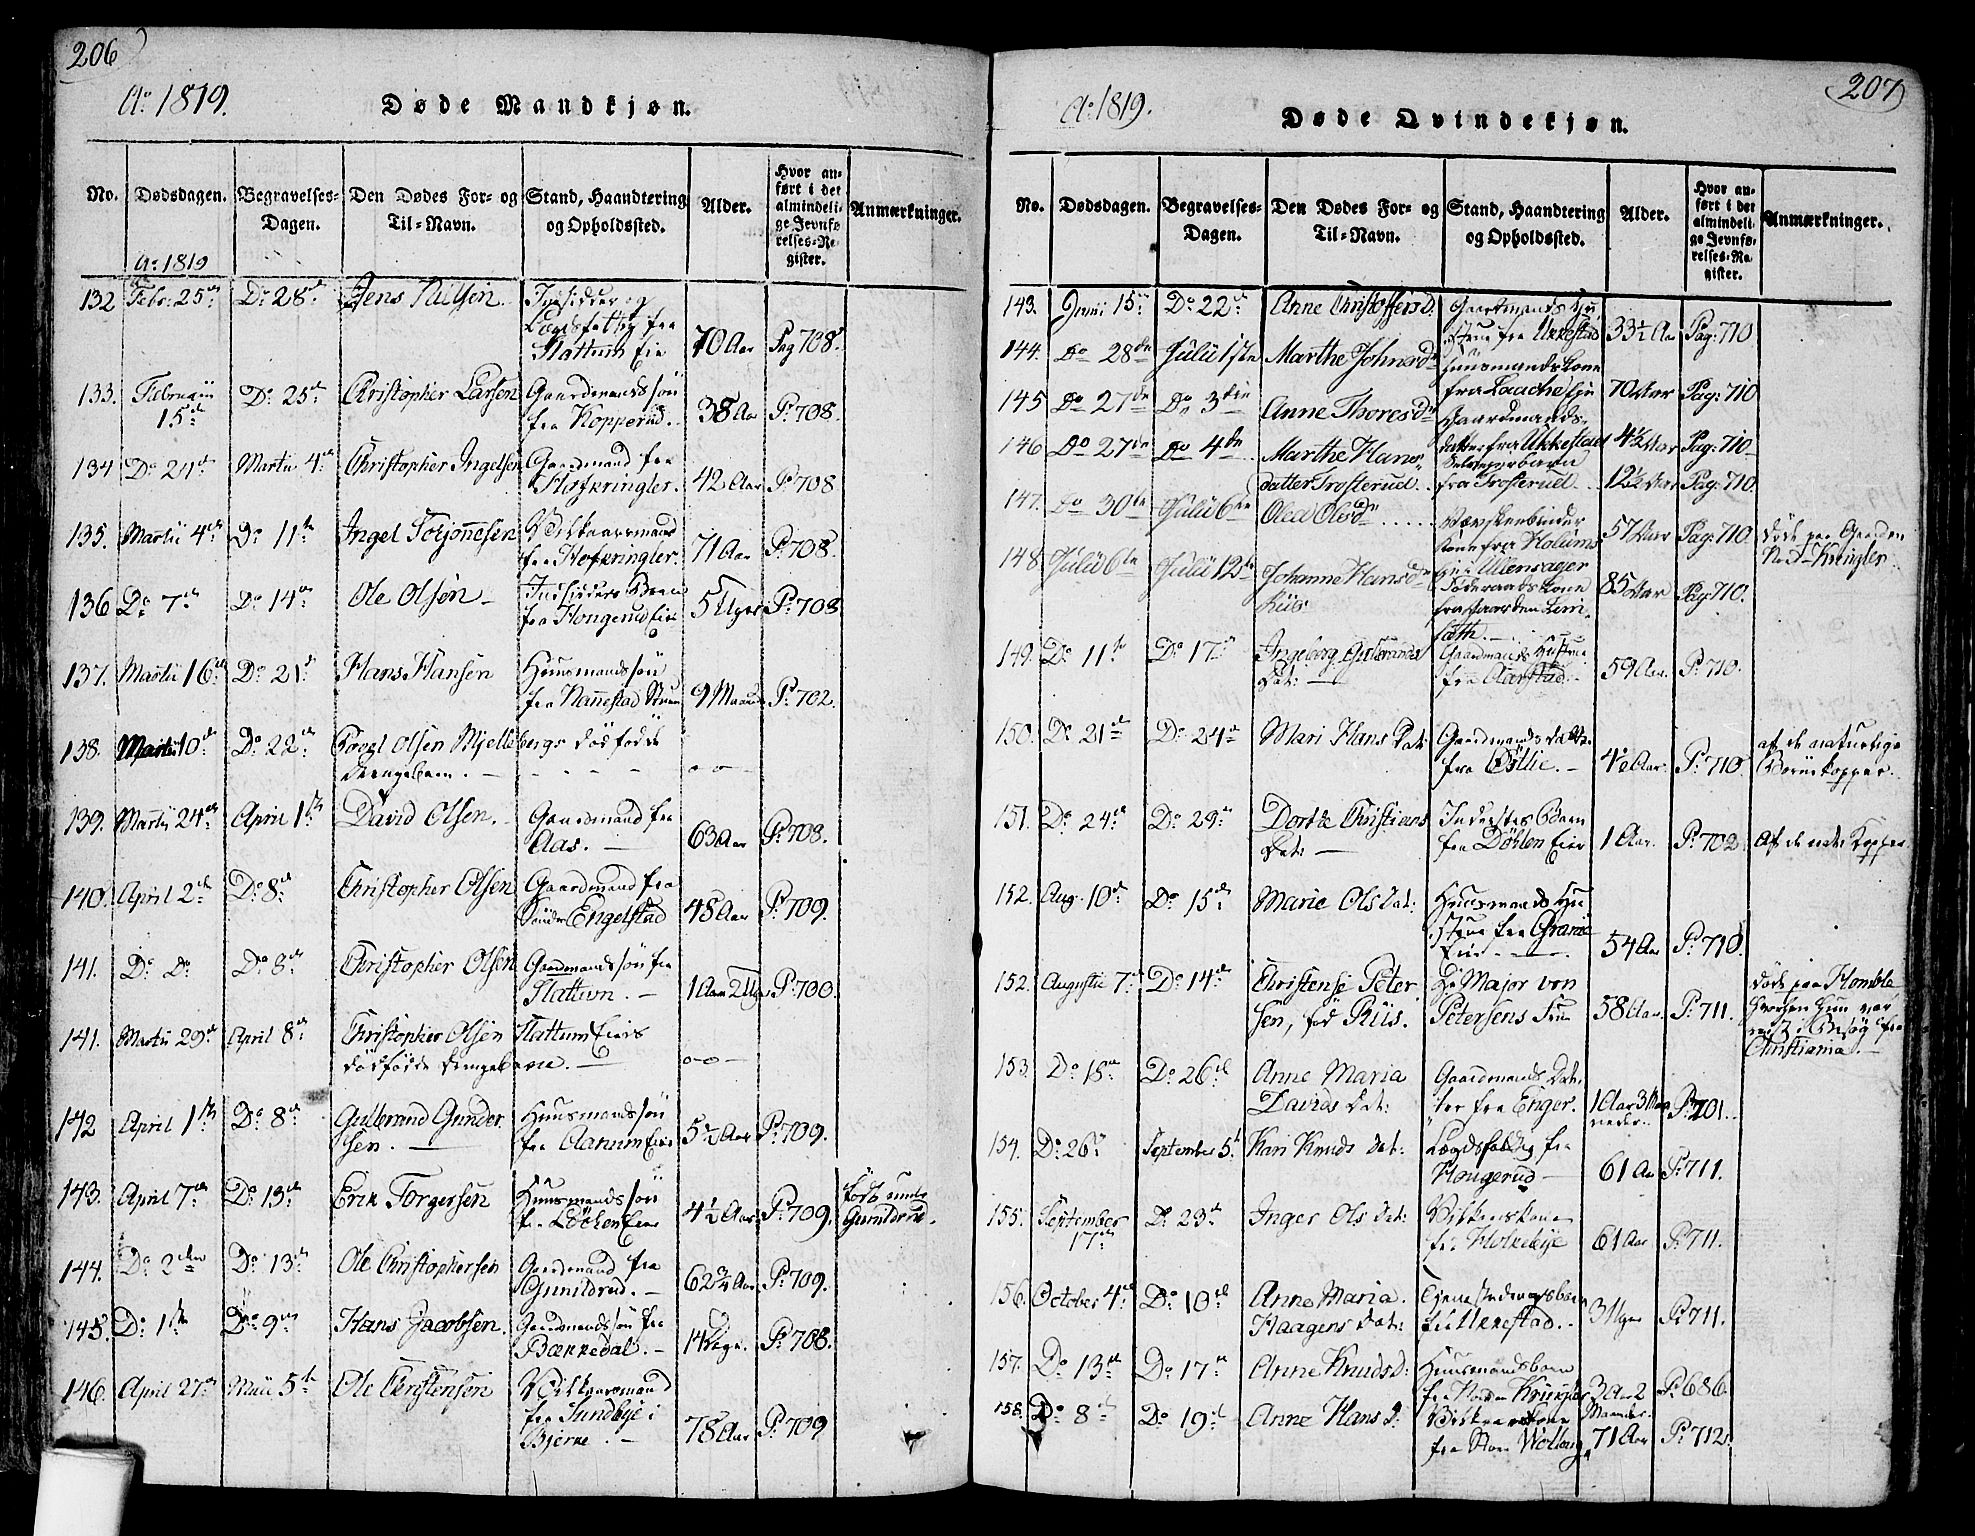 206
Ao 1819.
Døde Mandkjøn.
No.
Dødsdagen.
Begravelses-Dagen.
Den Dødes For- og Til-Navn.
Stand, Haandtering og Opholdssted.
Alder.
Hvor anført i det almindelige Jevnførelses-Register.
Anmærkninger.
Ao 1819
132 Febr: 25de Do 28de Jens Nilsen Inðsidder og
Lægdsfattig fra
Hattum Eie 70 Aar Pag 708.
133. Februarii
15de Do 25de Christopher Larsen Gaardmandssøn
fra Kopperud. 38 Aar P: 708.
134 Do 24de Martii 4de Christopher Ingelsen Gaardmand fra
Hofkringler. 42 Aar P: 708
135. Martii 4de Do 11te Ingel Torjonesen Vilkaarsmand
fra Hofkringler. 71 Aar P: 708.
136 Do 7de Do 14de Ole Olsen Indsidders Barn
fra Hongerud Eie 5 Uger P: 708
137. Martii 16de Do 21de Hans Hansen Huusmandssøn
fra Nannestad 9 Maaneder P: 702.
138. Martii 10de Do 22de Povel Olsen Mjellebergs dødfødte
Drengebarn.
139. Martii 24de April 1ste David Olsen. Gaardmand fra
Aas. 63 Aar P: 708.
140. April 2den Do 8de Christopher Olsen Gaardmand fra
Søndre Engelstad 48 Aar P: 709.
141. Do Do Do 8de Christopher Olsen Gaardmandssøn fra
Hattum. 1 Aar 2 Uger P: 700.
141. Martii 29de April 8de Christopher Olsen Hattum Eies
dødfødte Drengebarn.
142 April 1ste Do 8de Gulbrand Gunder
sen. Huusmandssøn
fra Aanum Eie 5½ Aar P: 709.
143. April 7de Do 13de Erik Torgersen Huusmandssøn
fra Løken Eie 4½ Aar P: 709.
Gunildrud.
144. Do 2den Do 13de Ole Christophersen Gaardmand fra
Gunildrud. 62¾ Aar P: 709.
145. Do 1ste Do 9de Hans Jacobsen. Gaardmandssøn fra
Bækkedal. 14 Dage. P: 708.
146. April 27de Maii 5te Ole Christensen Vilkaarsmand
fra Sundbye i
Bjerke. 78 Aar P: 709
207
Ao 1819.
Døde Qvindekjøn.
No.
Dødsdagen.
Begravelses-Dagen.
Den Dødes For- og Til-Navn.
Stand, Haandtering og Opholdssted.
Alder.
Hvor anført i det almindelige Jevnførelses-Register.
Anmærkninger.
143. Junii 15de Do 22de Anne Christoffersd: Gaardmands Hu
strue fra Ukkestad 33½ Aar Pag: 710
144. Do 28de Julii 1ste Marthe Johnsdr Huusmandskone
fra Laache Eje 70 Aar Pag: 710
145 Do 27de Do 3die Anne Thoresdr Gaardmands
datter fra Ukkestad 4½ Aar Pag: 710
146 Do 27de Do 4de Marthe Hans
datter Trosterud. Selvejerbarn
fra Trosterud 12½ Aar Pag: 710.
147. Do 30te Julii 6te Olea Olsdr Væskenbinder
kone fra Holums
Eje i Ullensager 57 Aar Pag: 710 døde paa Gaarden
Kringler.
148. Julii 6te Julii 12te Johanne Hansdr
Riis Føderaadskone
fra Gaarden Lim
sæth. 85 Aar Pag: 710.
149. Do 11te Do 17de Ingeborg Gulbrands
Dat: Gaardmands Hustrue
fra Aarstad. 59 Aar. P: 710.
150. Do 21de Do 24de Mari Hans Dat: Gaardmands datter
fra Østlie. P: 710. af de naturlige
Børnekopper.
151. Do 24de Do 29de Dorthe Christians
Dat: Inderstes Barn
fra Døhlen Eier 1 Aar. P: 702 Af de nat: Kopper
152. Aug. 10de Do 15de Marie Ols Dat: Huusmands Hu
strue fra Granie
Eie 54 Aar P: 710.
152. Augustii 7de Do 14de Christense Peter
sen, fød Riis. Hr Major von
Petersens Frue 58 Aar. P: 711. døde paa Homble
hvorhen hun var
reist i Besøg fra
Christiania.
153. Do 18de Do 26de Anne Maria
Davids Dat: Gaardmands Dat
ter fra Enger. 1 Aar 3 Maa
neder. P: 701.
154. Do 26de September 5te Kari Knuds Dat: Lægdsfattig fra
Hongerud 61 Aar P: 711.
155. September
17de Do 23de Inger Ols Dat: Vilkaarskone
fra Holkebye 61 Aar P: 711.
156. October 4de Do 10de Anne Maria
Haagens Dat: Tjenestedrengsbarn
fra Ukkestad. 3 Uger P: 711.
157. Do 13de Do 17de Anne Knudsd: Huusmandsbarn
fra Norden Kringler 3 Aar 2
Maaneder P: 686.
158. Do 8de Do 19de Anne Hans D: Vilkaarskone
fra Store Wolberg 71 Aar P: 712.